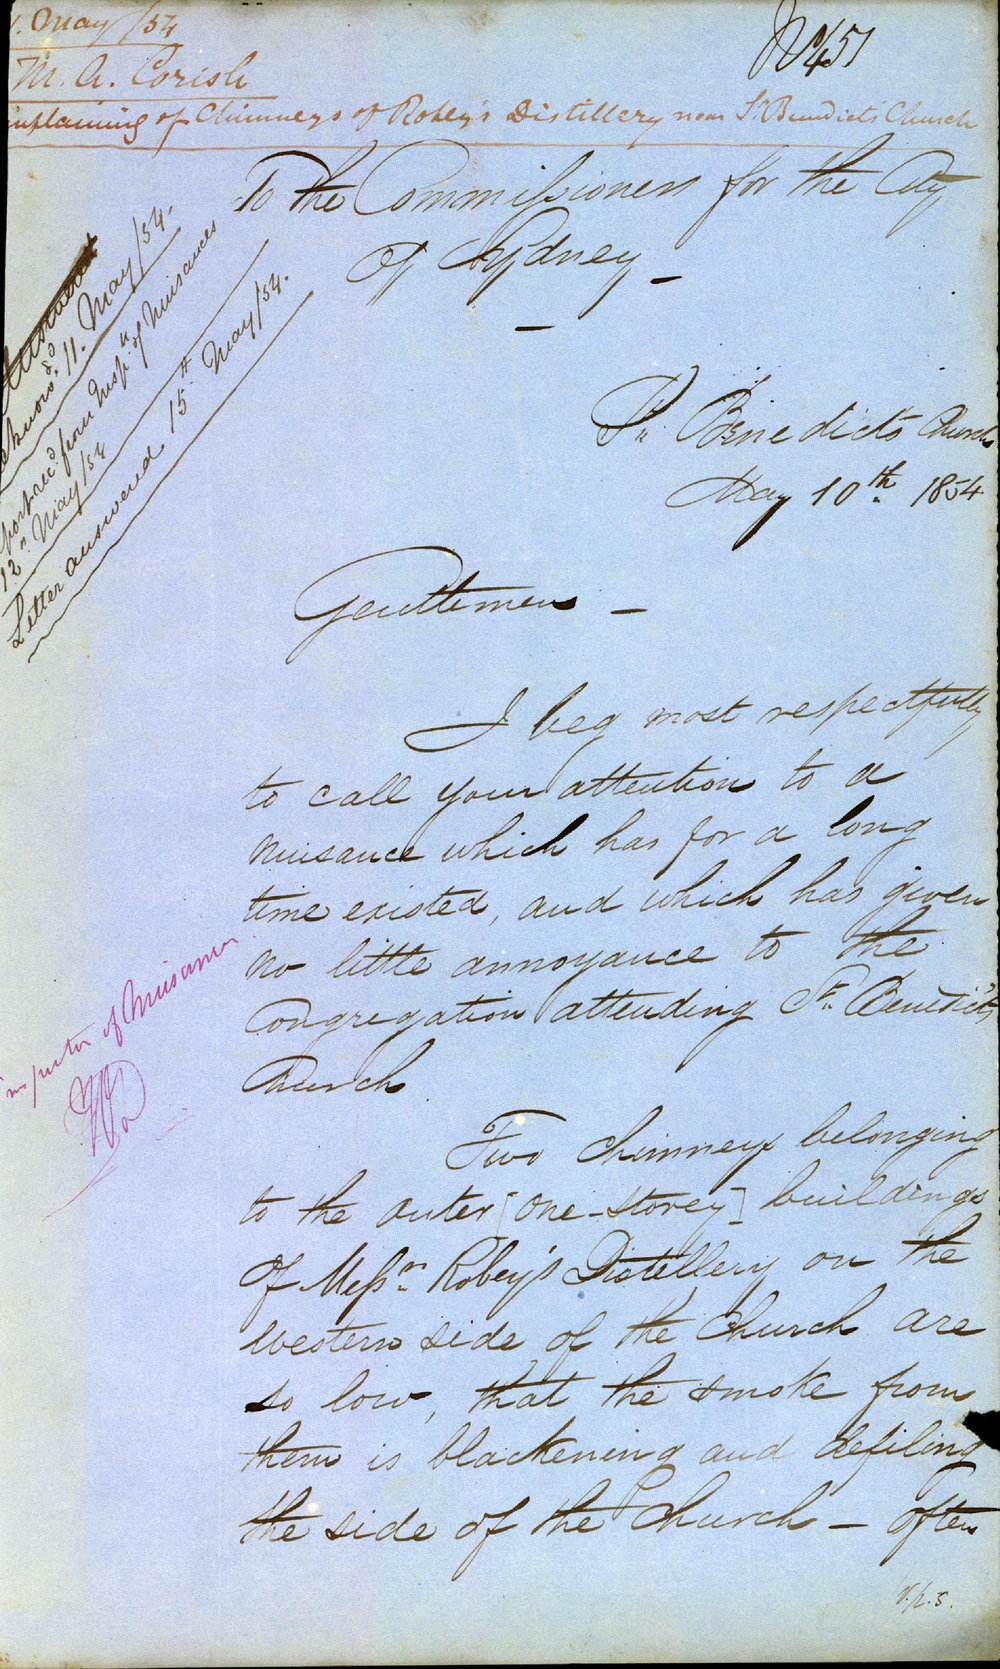 May /54
No 451
M. A. Corish
complaining of Chimneys of Robey's Distillery near St Benedict's Church
To the Commissioners for the City
of Sydney —
11. May /54.
from Insp.r of Nuisances
12 May /54
Letter answered 15th May /54.
St. Benedict's Church
May 10th. 1854
Gentlemen —
I beg most respectfully
to call your attention to a
nuisance which has for a long
time existed, and which has given
no little annoyance to the
Congregation attending St. Benedict's
Church
Inspector of Nuisances
Two chimneys belonging
to the outer [one-storey] buildings
of Messrs. Robey's Distellery on the
Western side of the Church are
so low, that the smoke from
them is blackening and defiling
the side of the Church — often